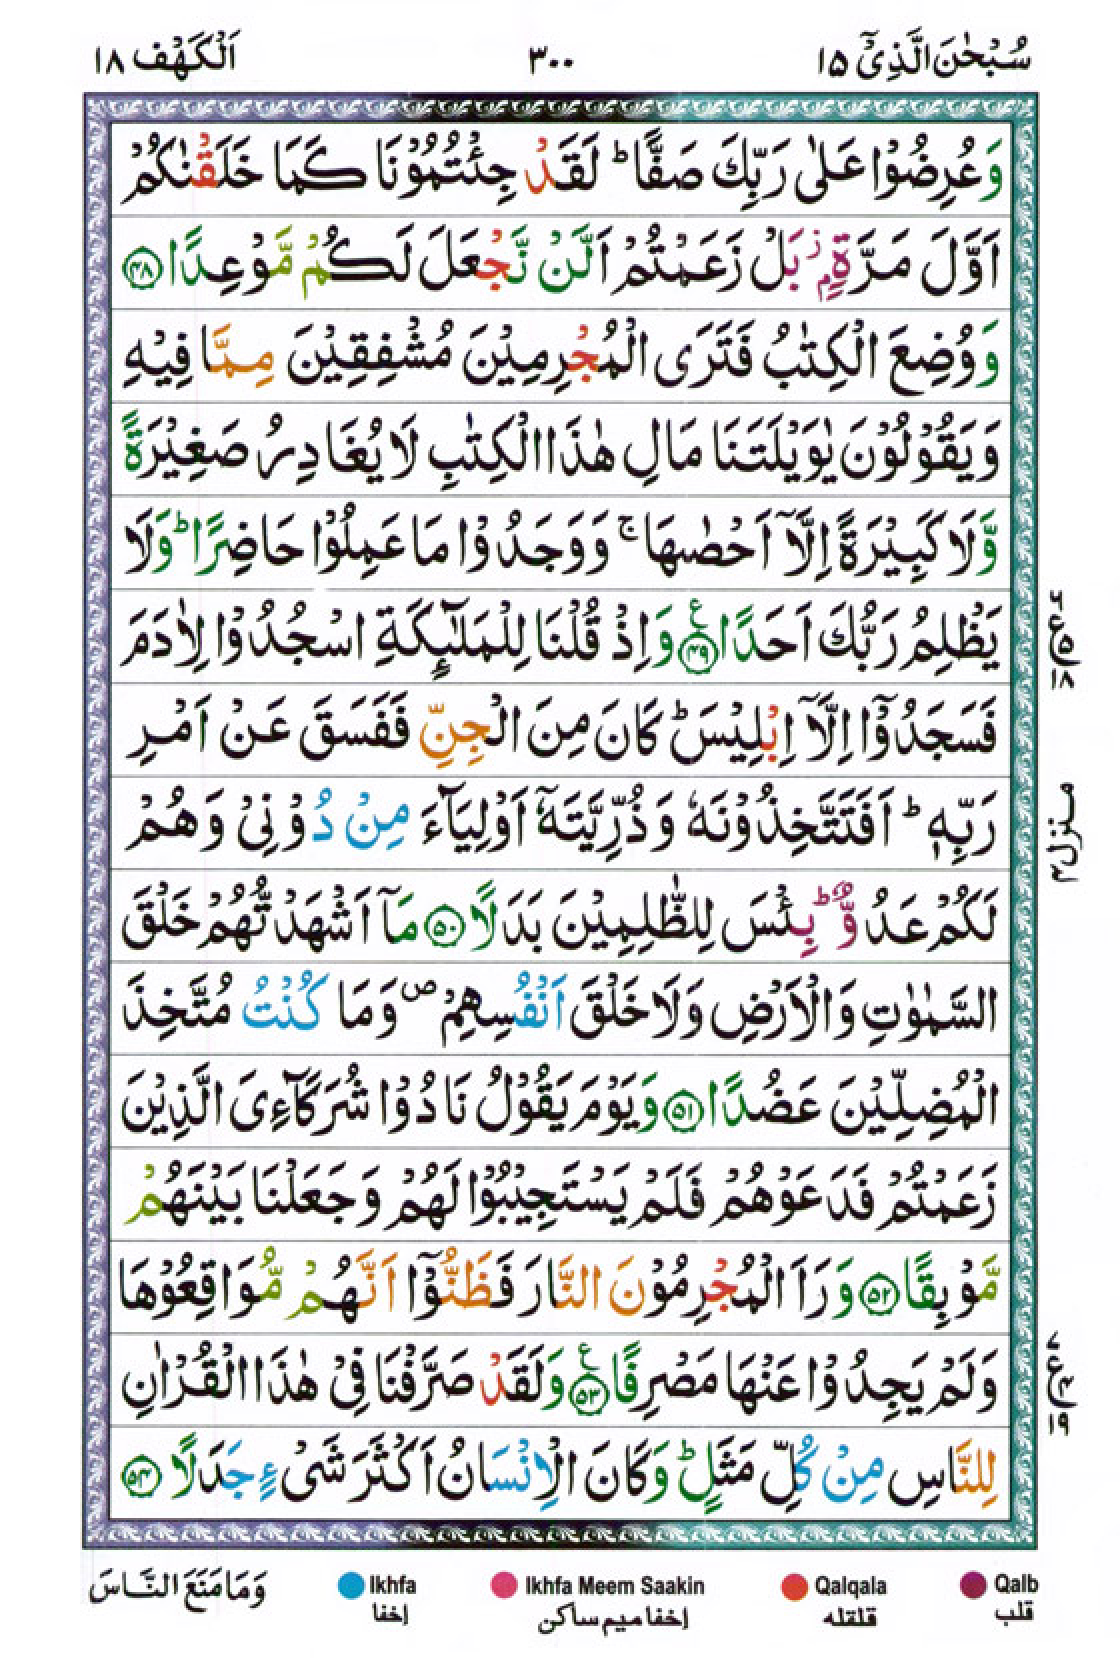 سُبْحٰنَ الَّذِیْۤ ۱۵ ۳۰۰ اَلْكَهْف ۱۸
وَعُرِضُوْا عَلٰی رَبِّكَ صَفًّا ؕ لَقَدْ جِئْتُمُوْنَا كَمَا خَلَقْنٰكُمْ
اَوَّلَ مَرَّةٍۭ ؗ بَلْ زَعَمْتُمْ اَلَّنْ نَّجْعَلَ لَكُمْ مَّوْعِدًا ﴿۴۸﴾
وَوُضِعَ الْكِتٰبُ فَتَرَی الْمُجْرِمِیْنَ مُشْفِقِیْنَ مِمَّا فِیْهِ
وَیَقُوْلُوْنَ یٰوَیْلَتَنَا مَالِ هٰذَا الْكِتٰبِ لَا یُغَادِرُ صَغِیْرَةً
وَّلَا كَبِیْرَةً اِلَّاۤ اَحْصٰىهَا ۚ وَوَجَدُوْا مَا عَمِلُوْا حَاضِرًا ؕ وَلَا
یَظْلِمُ رَبُّكَ اَحَدًا ﴿۴۹﴾ ع وَاِذْ قُلْنَا لِلْمَلٰٓىِٕكَةِ اسْجُدُوْا لِاٰدَمَ
ع ۵ ۱۸
فَسَجَدُوْۤا اِلَّاۤ اِبْلِیْسَ ؕ كَانَ مِنَ الْجِنِّ فَفَسَقَ عَنْ اَمْرِ
رَبِّهٖ ؕ اَفَتَتَّخِذُوْنَهٗ وَذُرِّیَّتَهٗۤ اَوْلِیَآءَ مِنْ دُوْنِیْ وَهُمْ
منزل ۴
لَكُمْ عَدُوٌّۢ ؕ بِئْسَ لِلظّٰلِمِیْنَ بَدَلًا ﴿۵۰﴾ مَاۤ اَشْهَدْتُّهُمْ خَلْقَ
السَّمٰوٰتِ وَالْاَرْضِ وَلَا خَلْقَ اَنْفُسِهِمْ ۪ وَمَا كُنْتُ مُتَّخِذَ
الْمُضِلِّیْنَ عَضُدًا ﴿۵۱﴾ وَیَوْمَ یَقُوْلُ نَادُوْا شُرَكَآءِیَ الَّذِیْنَ
زَعَمْتُمْ فَدَعَوْهُمْ فَلَمْ یَسْتَجِیْبُوْا لَهُمْ وَجَعَلْنَا بَیْنَهُمْ
مَّوْبِقًا ﴿۵۲﴾ وَرَاَ الْمُجْرِمُوْنَ النَّارَ فَظَنُّوْۤا اَنَّهُمْ مُّوَاقِعُوْهَا
وَلَمْ یَجِدُوْا عَنْهَا مَصْرِفًا ﴿۵۳﴾ ع وَلَقَدْ صَرَّفْنَا فِیْ هٰذَا الْقُرْاٰنِ
ع ۱۹
لِلنَّاسِ مِنْ كُلِّ مَثَلٍ ؕ وَكَانَ الْاِنْسَانُ اَكْثَرَ شَیْءٍ جَدَلًا ﴿۵۴﴾
وَمَا مَنَعَ النَّاسَ
Ikhfa Ikhfa Meem Saakin Qalqala Qalb
إخفا إخفا میم ساکن قلقله قلب